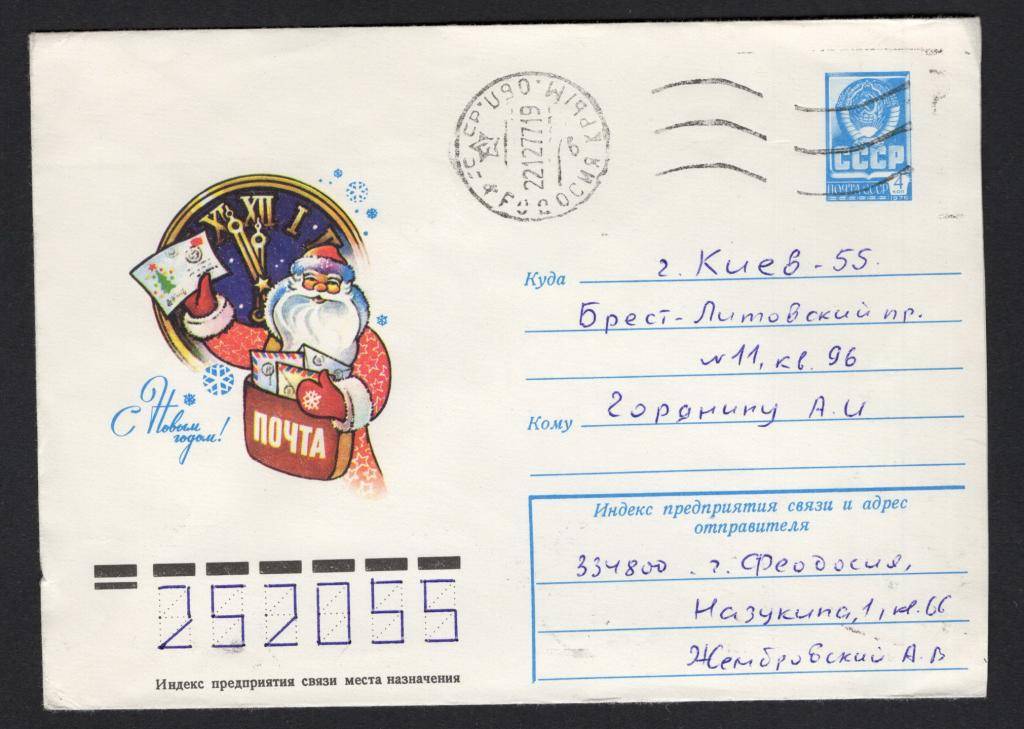 УССР. КРЫМ. ОБЛ.
22127719
ФЕОДОСИЯ
СССР
ПОЧТА СССР
4
КОП
1976
XI XII I
С Новым
годом!
ПОЧТА
Куда г. Киев-55.
Брест-Литовский пр.
№11, кв. 96
Кому Горянину А.И
Индекс предприятия связи и адрес
отправителя
334800. г. Феодосия,
Назукина, 1, кв. 66
Жембровский А.В
252055
Индекс предприятия связи места назначения